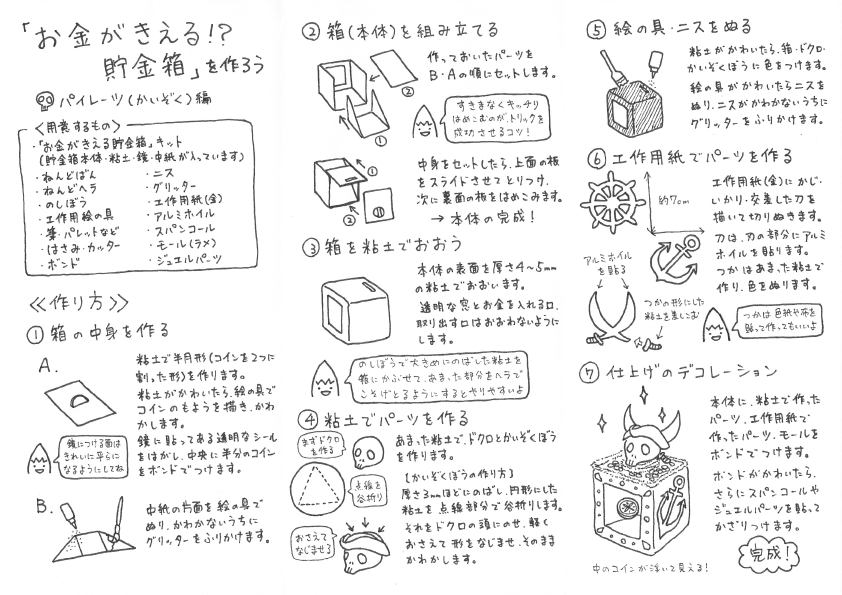 「お金がきえる!?
貯金箱」を作ろう
パイレーツ(かいぞく)編
<用意するもの>
・「お金がきえる貯金箱」キット
(貯金箱本体・粘土・鏡・中紙が入っています)
・ねんどばん
・ねんどヘラ
・のしぼう
・工作用絵の具
・筆・パレットなど
・はさみ・カッター
・ボンド
・ニス
・グリッター
・工作用紙(金)
・アルミホイル
・スパンコール
・モール(ラメ)
・ジュエルパーツ
《作り方》
① 箱の中身を作る
A.
粘土で半月形(コインを2つに
割った形)を作ります。
粘土がかわいたら、絵の具で
コインのもようを描き、かわ
かします。
鏡に貼ってある透明なシール
をはがし、中央に半分のコイン
をボンドでつけます。
鏡につける面は
きれいに平らに
なるようにしてね
B.
中紙の片面を絵の具で
ぬり、かわかないうちに
グリッターをふりかけます。
② 箱(本体)を組み立てる
作っておいたパーツを
B・Aの順にセットします。
②
①
すきまなくキッチリ
はめこむのが、トリックを
成功させるコツ!
中身をセットしたら、上面の板
をスライドさせてとりつけ、
次に裏面の板をはめこみます。
→ 本体の完成!
①
②
③ 箱を粘土でおおう
本体の表面を厚さ4〜5mm
の粘土でおおいます。
透明な窓とお金を入れる口、
取り出す口はおおわないように
します。
のしぼうで大きめにのばした粘土を
箱にかぶせて、あまった部分をヘラで
こそげとるようにするとやりやすいよ
④ 粘土でパーツを作る
まずドクロ
を作る
あまった粘土で、ドクロとかいぞくぼう
を作ります。
点線を
谷折り
【かいぞくぼうの作り方】
厚さ3mmほどにのばし、円形にした
粘土を、点線部分で谷折りします。
それをドクロの頭にのせ、軽く
おさえて形をなじませ、そのまま
かわかします。
おさえて
なじませる
⑤ 絵の具・ニスをぬる
粘土がかわいたら、箱・ドクロ・
かいぞくぼうに色をつけます。
絵の具がかわいたらニスを
ぬり、ニスがかわかないうちに
グリッターをふりかけます。
⑥ 工作用紙でパーツを作る
約7cm
工作用紙(金)にかじ・
いかり・交差した刀を
描いて切りぬきます。
刀は、刃の部分にアルミ
ホイルを貼ります。
つかはあまった粘土で
作り、色をぬります。
アルミホイル
を貼る
つかの形にした
粘土を差しこむ
つかは色紙や布を
貼って作ってもいいよ
⑦ 仕上げのデコレーション
本体に、粘土で作った
パーツ、工作用紙で
作ったパーツ、モールを
ボンドでつけます。
ボンドがかわいたら、
さらにスパンコールや
ジュエルパーツを貼って
かざりつけます。
完成!
中のコインが浮いて見える!